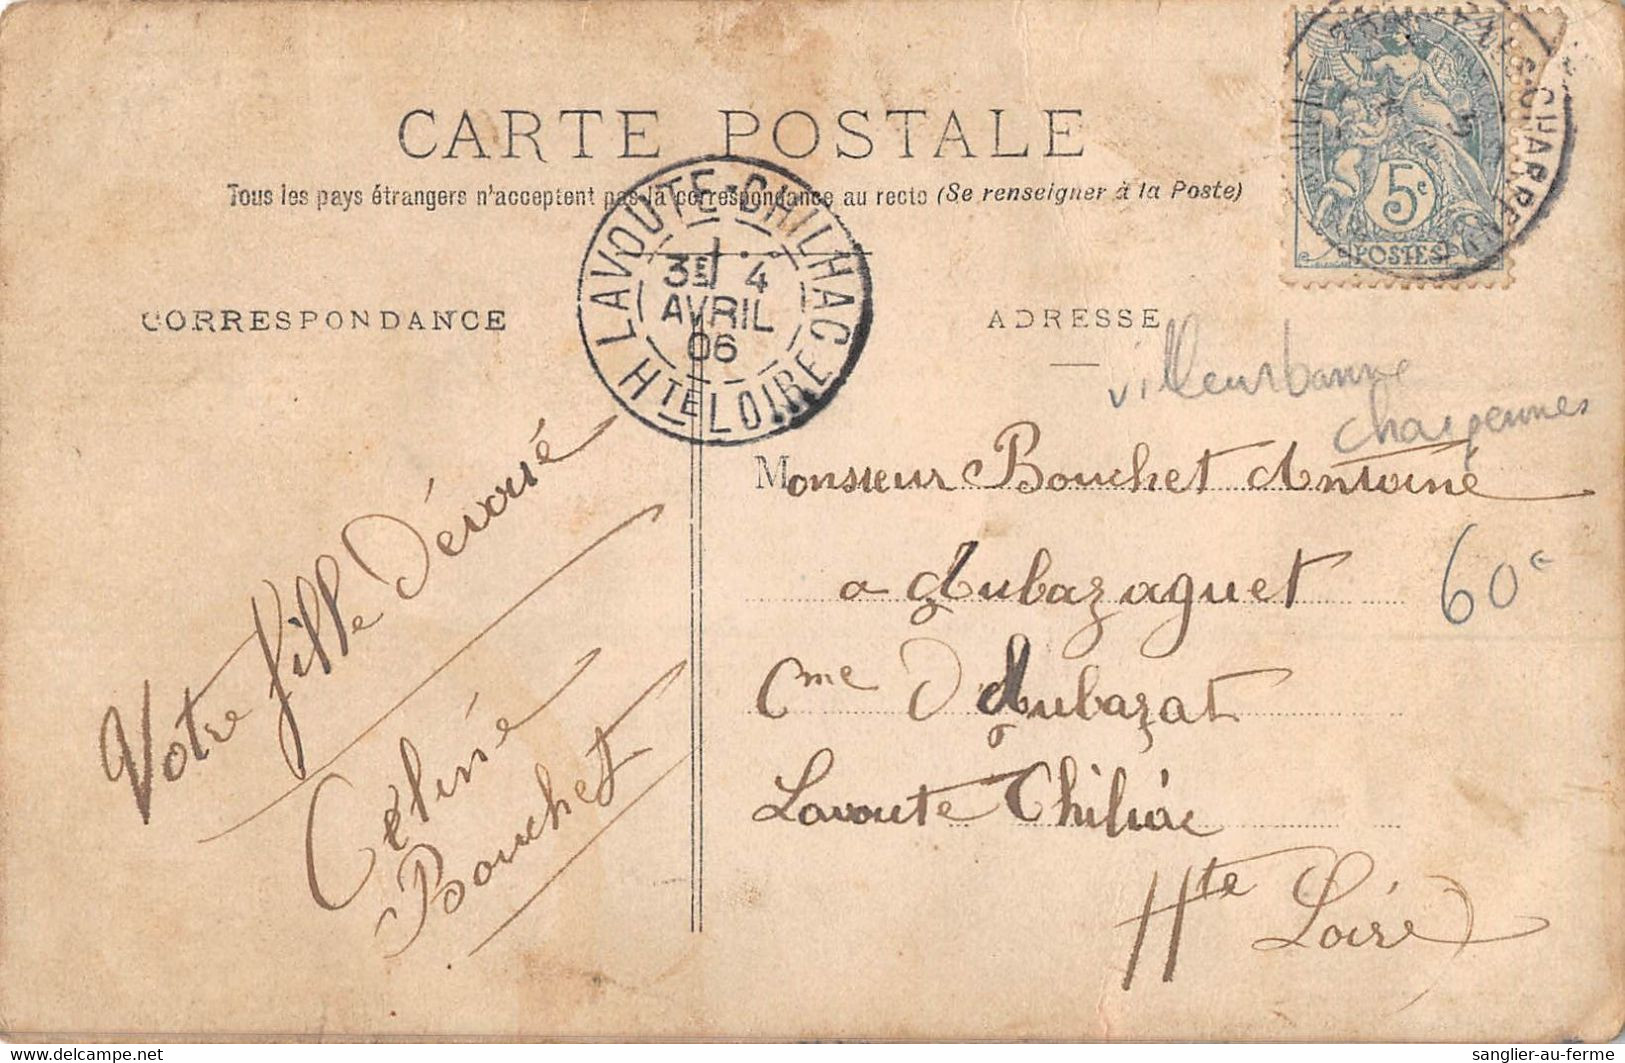 CARTE POSTALE
Tous les pays étrangers n'acceptent pas la correspondance au recto (Se renseigner à la Poste)
5c
POSTES
LAVOUTE-CHILHAC
3E 4
AVRIL
06
HTE LOIRE
CORRESPONDANCE
ADRESSE
Villeurbanne
charpennes
Votre fille Dévoué
Céline
Bouchet
Monsieur Bouchet Antoine
a Aubazaguet
60c
Cme D Aubazat
Lavoute Chiliac
Hte Loire
sanglier-au-ferme
www.delcampe.net